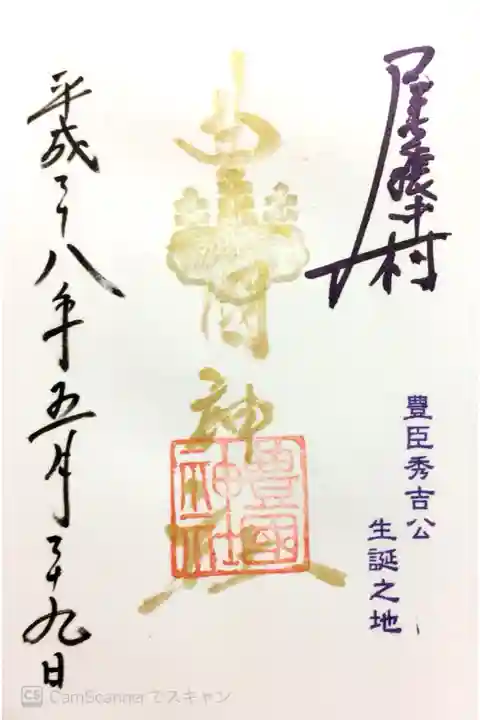 尾張中村
豐臣秀吉公
生誕之地
豊國神社
平成二十八年五月二十九日
CS CamScannerでスキャン